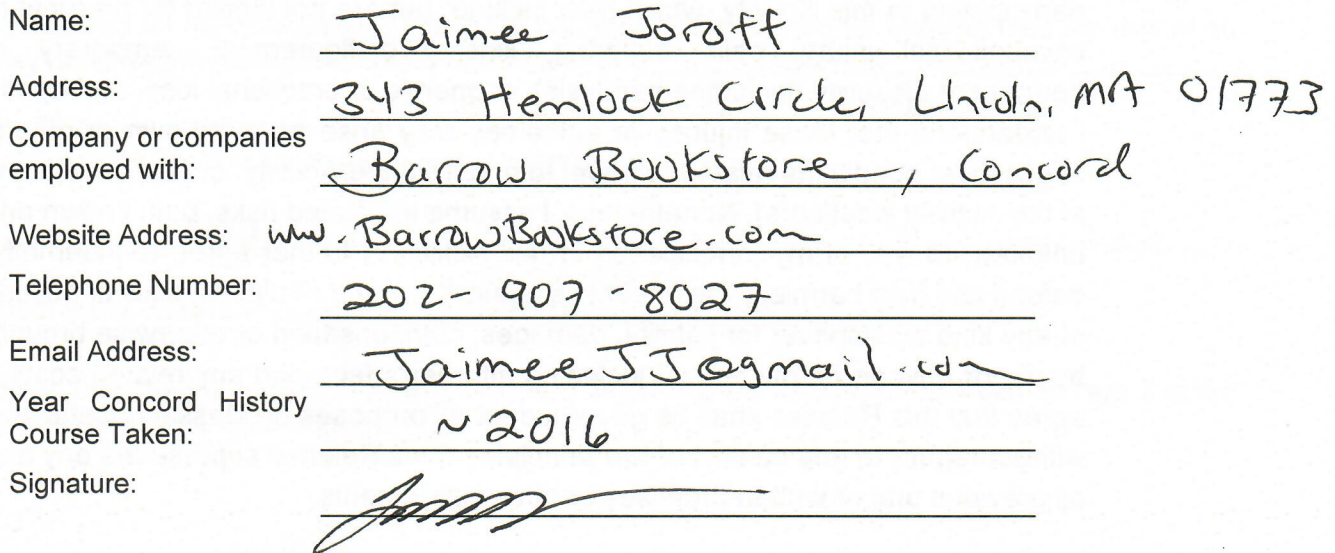 Name: Jaimee Joroff
Address: 343 Hemlock Circle, Lincoln, MA 01773
Company or companies
employed with: Barrow Bookstore, Concord
Website Address: www.BarrowBookstore.com
Telephone Number: 202 907-8027
Email Address: JaimeeJJ@gmail.com
Year Concord History
Course Taken: ~2016
Signature: